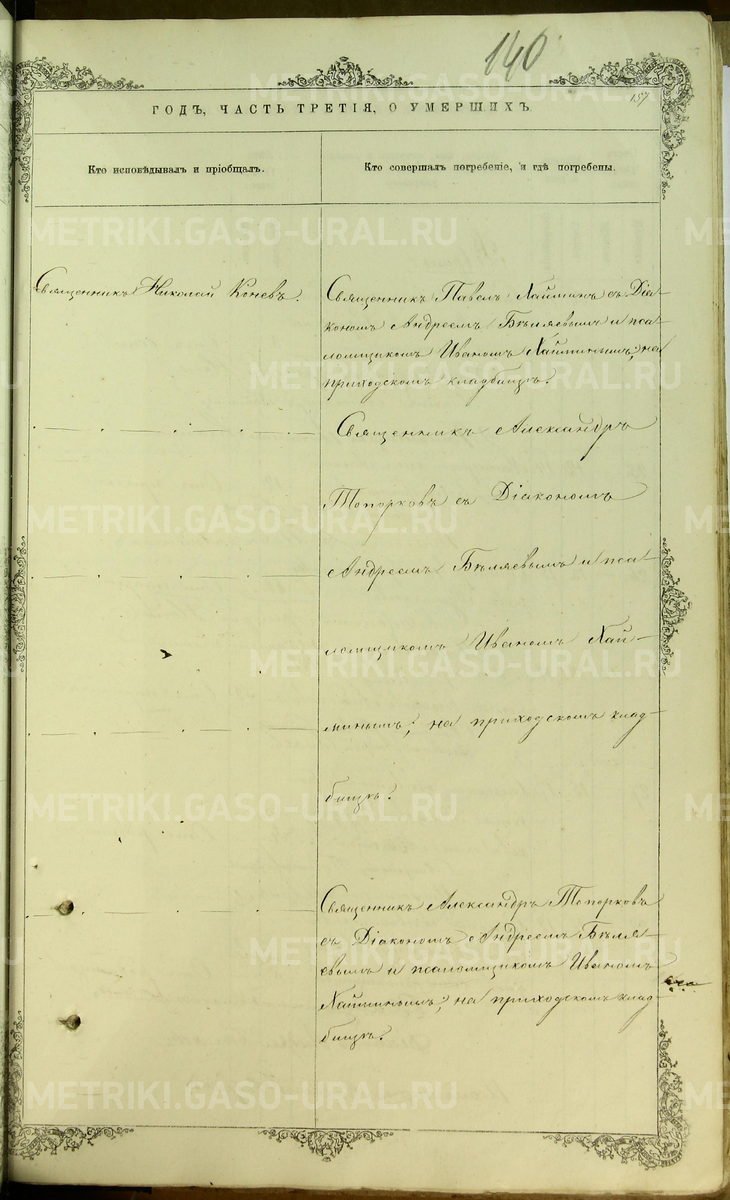 140
157
ГОДЪ, ЧАСТЬ ТРЕТІЯ, О УМЕРШИХЪ.
Кто исповѣдывалъ и пріобщалъ.
Кто совершалъ погребеніе, и гдѣ погребены.
Священникъ Николай Коневъ.
Священникъ Павелъ Хайминъ съ Діа-
кономъ Андреемъ Бѣляевымъ и пса-
ломщикомъ Иваномъ Хайминымъ; на
приходскомъ кладбищѣ.
Священникъ Александръ
Топорковъ съ Діакономъ
Андреемъ Бѣляевымъ и пса-
ломщикомъ Иваномъ Хай-
минымъ; на приходскомъ клад-
бищѣ.
Священникъ Александръ Топорковъ
съ Діакономъ Андреемъ Бѣля-
евымъ и псаломщикомъ Иваномъ
Хайминымъ; на приходскомъ клад-
бищѣ.
METRIKI.GASO-URAL.RU